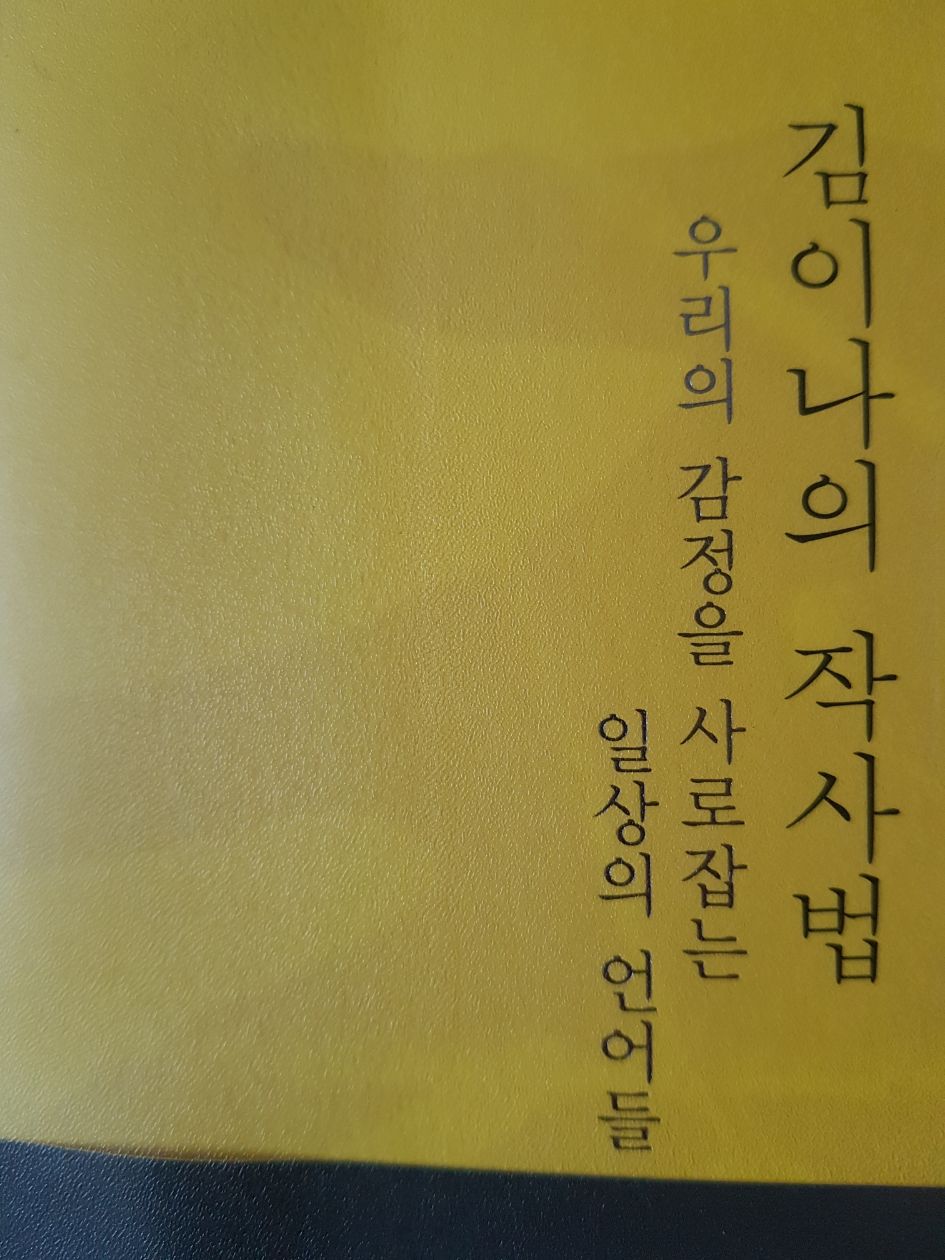 김이나의 작사법
우리의 감정을 사로잡는
일상의 언어들